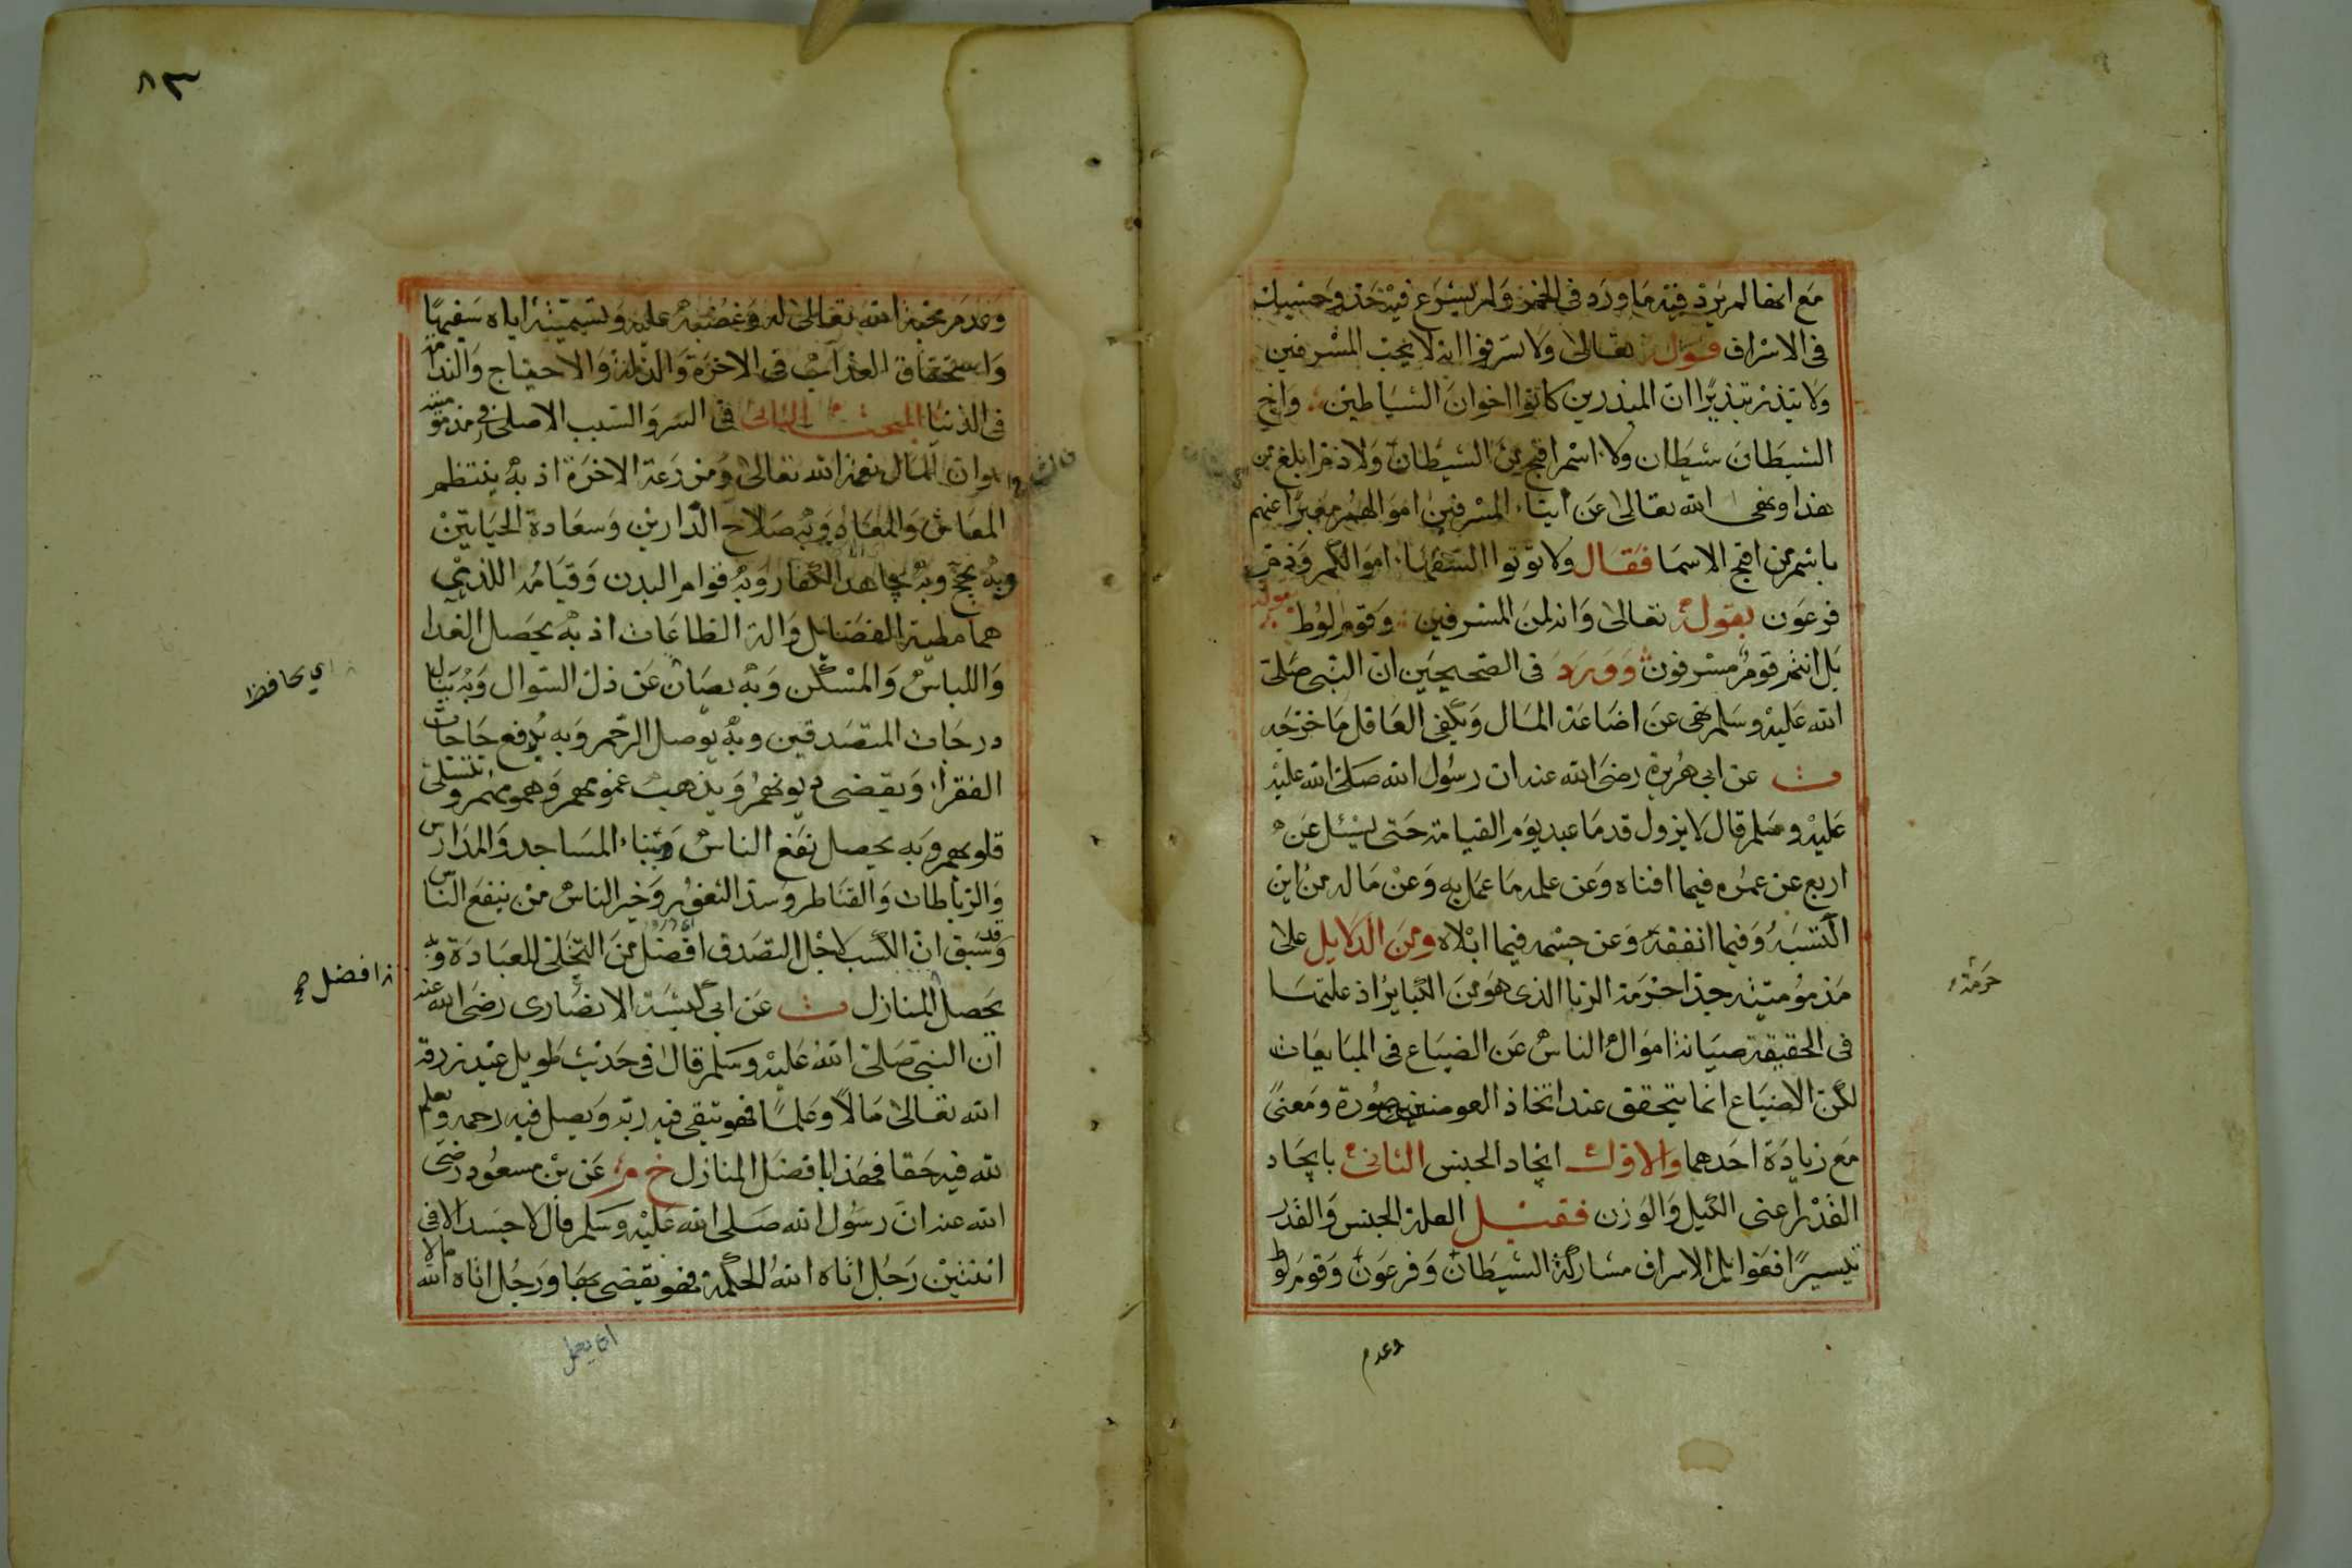 مع انها لم يرد فيه ما ورد في الخمر ولم يشرع فيه حد وحسبك
في الاسراف قوله تعالى ولا تسرفوا انه لا يحب المسرفين
ولا تبذر تبذيرا ان المبذرين كانوا اخوان الشياطين واخ
الشيطان شيطان ولا اسم اقبح من الشيطان ولا ذم ابلغ من
هذا ونهى الله تعالى عن ايتاء المسرفين اموالهم معبرا عنهم
باسم من اقبح الاسما فقال ولا تؤتوا السفهاء اموالكم وذم
فرعون بقوله تعالى وانه لمن المسرفين وقوم لوط بقوله
بل انتم قوم مسرفون وورد في الصحيحين ان النبي صلى
الله عليه وسلم نهى عن اضاعة المال ويكفي العاقل ما خرجه
ت عن ابي هريرة رضي الله عنه ان رسول الله صلى الله عليه
عليه وسلم قال لا يزول قدما عبد يوم القيامة حتى يسئل عن
اربع عن عمره فيما افناه وعن علمه ما عمل به وعن ماله من اين
اكتسبه وفيما انفقه وعن جسمه فيما ابلاه ومن الدلايل على
مذموميته جدا حرمة الربا الذي هو من الكبائر اذ علتها
في الحقيقة صيانة اموال الناس عن الضياع في المبايعات
لكن الاضياع انما يتحقق عند اتخاذ العوضين صورة ومعنى
مع زيادة احدهما والاول اتخاد الجنس الثاني باتحاد
القدر اعني الكيل والوزن فقيل العلة الجنس والقدر
تيسيرا فغوائل الاسراف مشاركة الشيطان وفرعون وقوم لوط
حرمة
وعدم
٨٣
وعدم محبة الله تعالى له وغضبه عليه وتسميته اياه سفيها
واستحقاق العذاب في الاخرة والذلة والاحتياج والندامة
في الدنيا المبحث الثاني في السر والسبب الاصلي في مذموميته
هو ان المال نعمة الله تعالى ومزرعة الاخرة اذ به ينتظم
المعاش والمعاد وبه صلاح الدارين وسعادة الحياتين
وبه يحج وبه يجاهد الكفار وبه قوام البدن وقيامه اللذين
هما مطية الفضايل والة الطاعات اذ به يحصل الغذا
واللباس والمسكن وبه يصان عن ذل السوال وبه ينال
درجات المتصدقين وبه يوصل الرحم وبه يدفع حاجات
الفقراء ويقضى ديونهم ويذهب غمومهم وهمومهم وتتسلى
قلوبهم وبه يحصل نفع الناس وبناء المساجد والمدارس
والرباطات والقناطر وسد الثغور وخير الناس من ينفع الناس
وقد سبق ان الكسب لاجل التصدق افضل من التخلي للعبادة وبه
يحصل المنازل ت عن ابي كبشة الانصاري رضي الله عنه
ان النبي صلى الله عليه وسلم قال في حديث طويل عبد رزقه
الله تعالى مالا وعلما فهو يتقي فيه ربه ويصل فيه رحمه ويعلم
لله فيه حقا فهذا بافضل المنازل خ م عن بن مسعود رضي
الله عنه ان رسول الله صلى الله عليه وسلم قال لا حسد الا في
اثنتين رجل اتاه الله الحكمة فهو يقضي بها ورجل اتاه الله مالا
اي يحافظ
افضل صح
اى يعمل